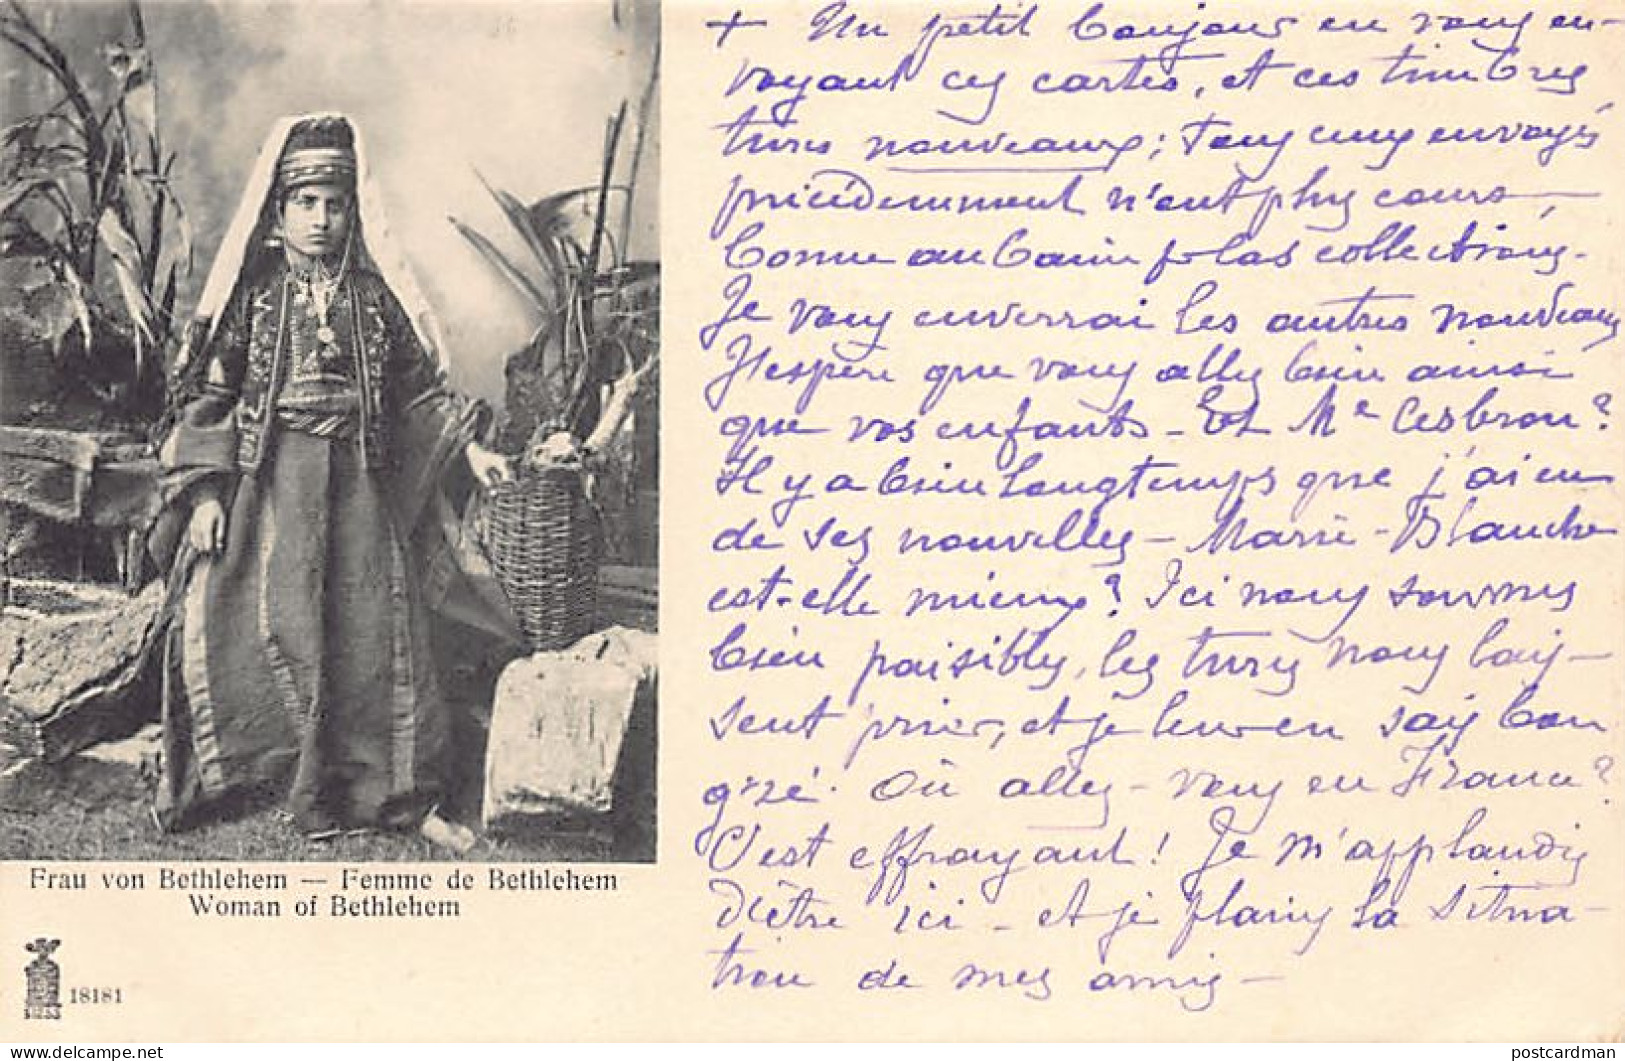 + Un petit bonjour en vous en-
voyant ces cartes, et ces timbres
turcs nouveaux; tous ceux envoyés
précédemment n'ont plus cours –
bonne aubaine pr les collections.
Je vous enverrai les autres nouveaux
J'espère que vous allez bien ainsi
que vos enfants – Et Me Cesbron?
Il y a bien longtemps que j'ai eu
de ses nouvelles – Marie-Blanche
est-elle mieux? Ici nous sommes
bien paisibles, les turcs nous lais-
sent prier, et je leur en sais bon
gré. Où allez-vous en France?
C'est effrayant! Je m'applaudis
d'être ici – et je plains la situa-
tion de mes amis –
Frau von Bethlehem — Femme de Bethlehem
Woman of Bethlehem
18181
delcampe.net
postcardman